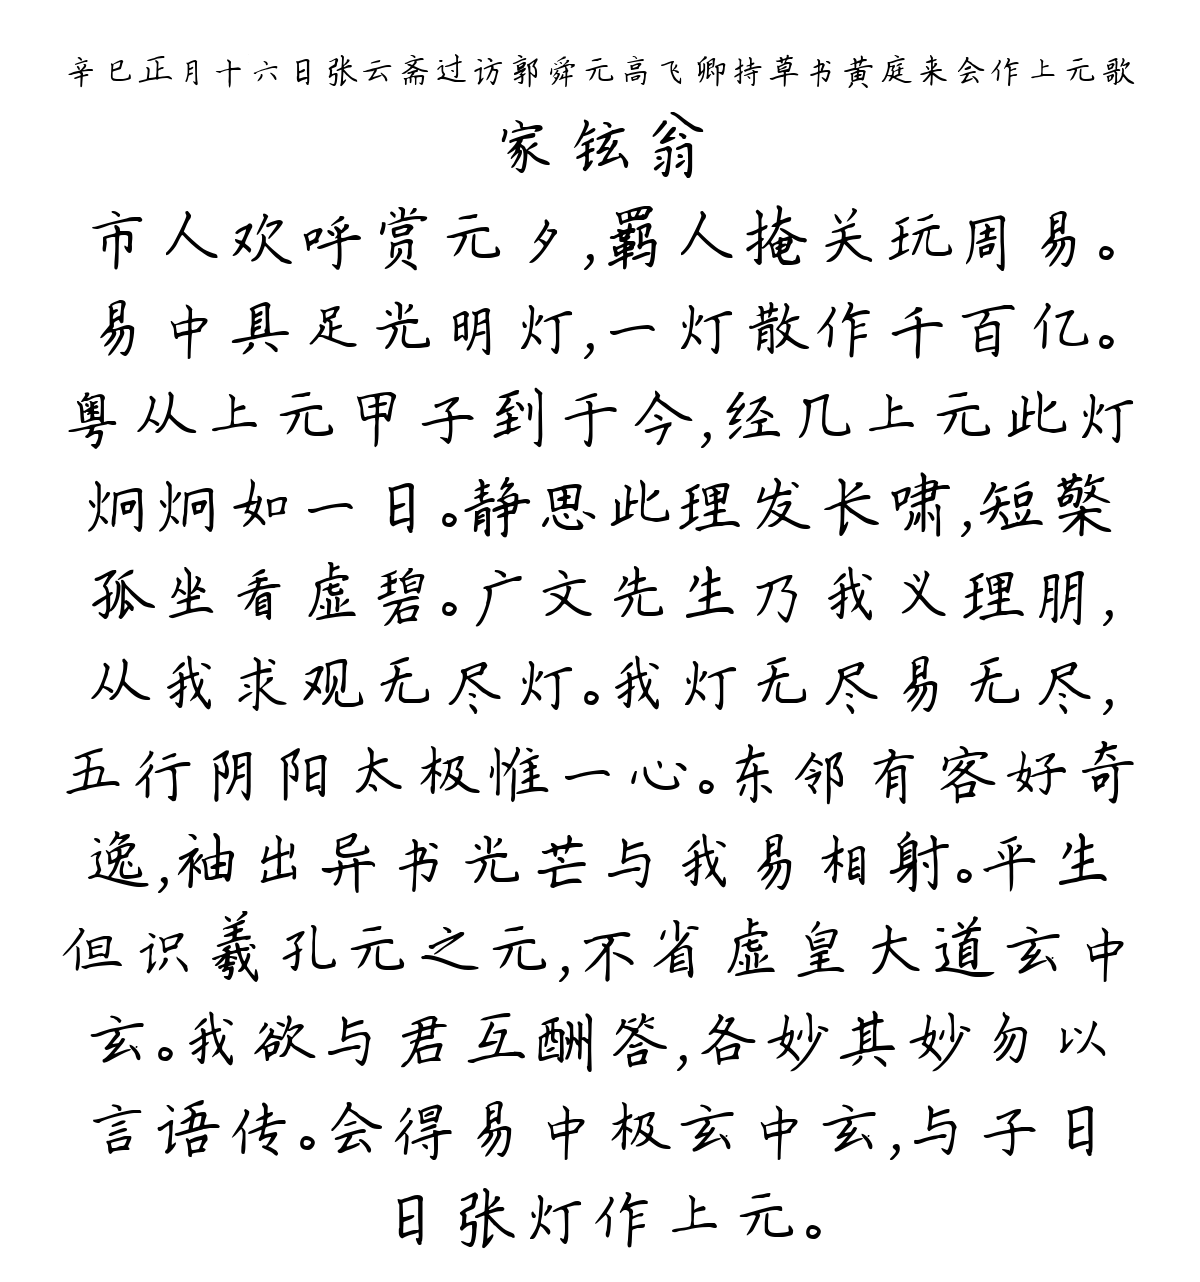 辛巳正月十六日张云斋过访郭舜元高飞卿持草书黄庭来会作上元歌
家铉翁
市人欢呼赏元夕,羁人掩关玩周易。
易中具足光明灯,一灯散作千百亿。
粤从上元甲子到于今,经几上元此灯
炯炯如一日。静思此理发长啸,短檠
孤坐看虚碧。广文先生乃我义理朋,
从我求观无尽灯。我灯无尽易无尽,
五行阴阳太极惟一心。东邻有客好奇
逸,袖出异书光芒与我易相射。平生
但识羲孔元之元,不省虚皇大道玄中
玄。我欲与君互酬答,各妙其妙勿以
言语传。会得易中极玄中玄,与子日
日张灯作上元。